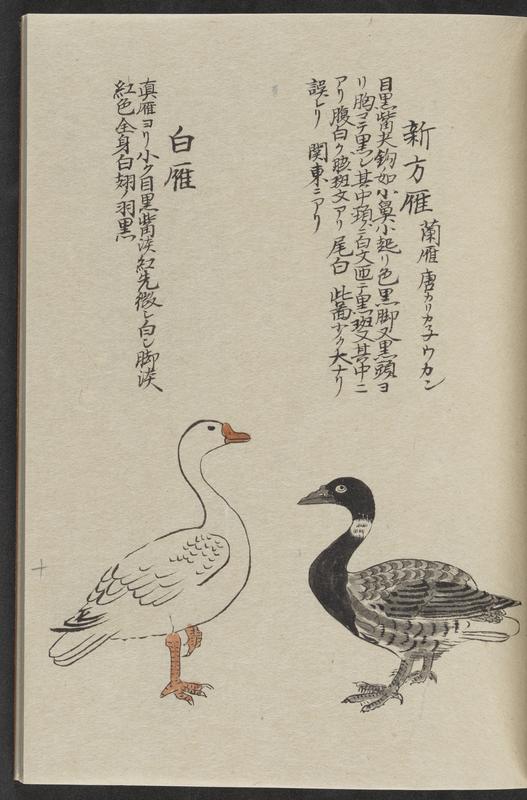 新方雁 蘭雁 唐カリカネ ウカン
目黒觜夫鈎如小鼻小起リ色黒脚又黒頭ヨ
リ胸マテ黒シ其中頚ニ白文匝テ黒斑又其中ニ
アリ腹白ク腋斑文アリ 尾白 此啚ヨリ少ク大ナリ
誤レリ 関東ニアリ
白雁
真雁ヨリ小ク目黒觜淡紅先微シ白シ脚淡
紅色全身白翅羽黒